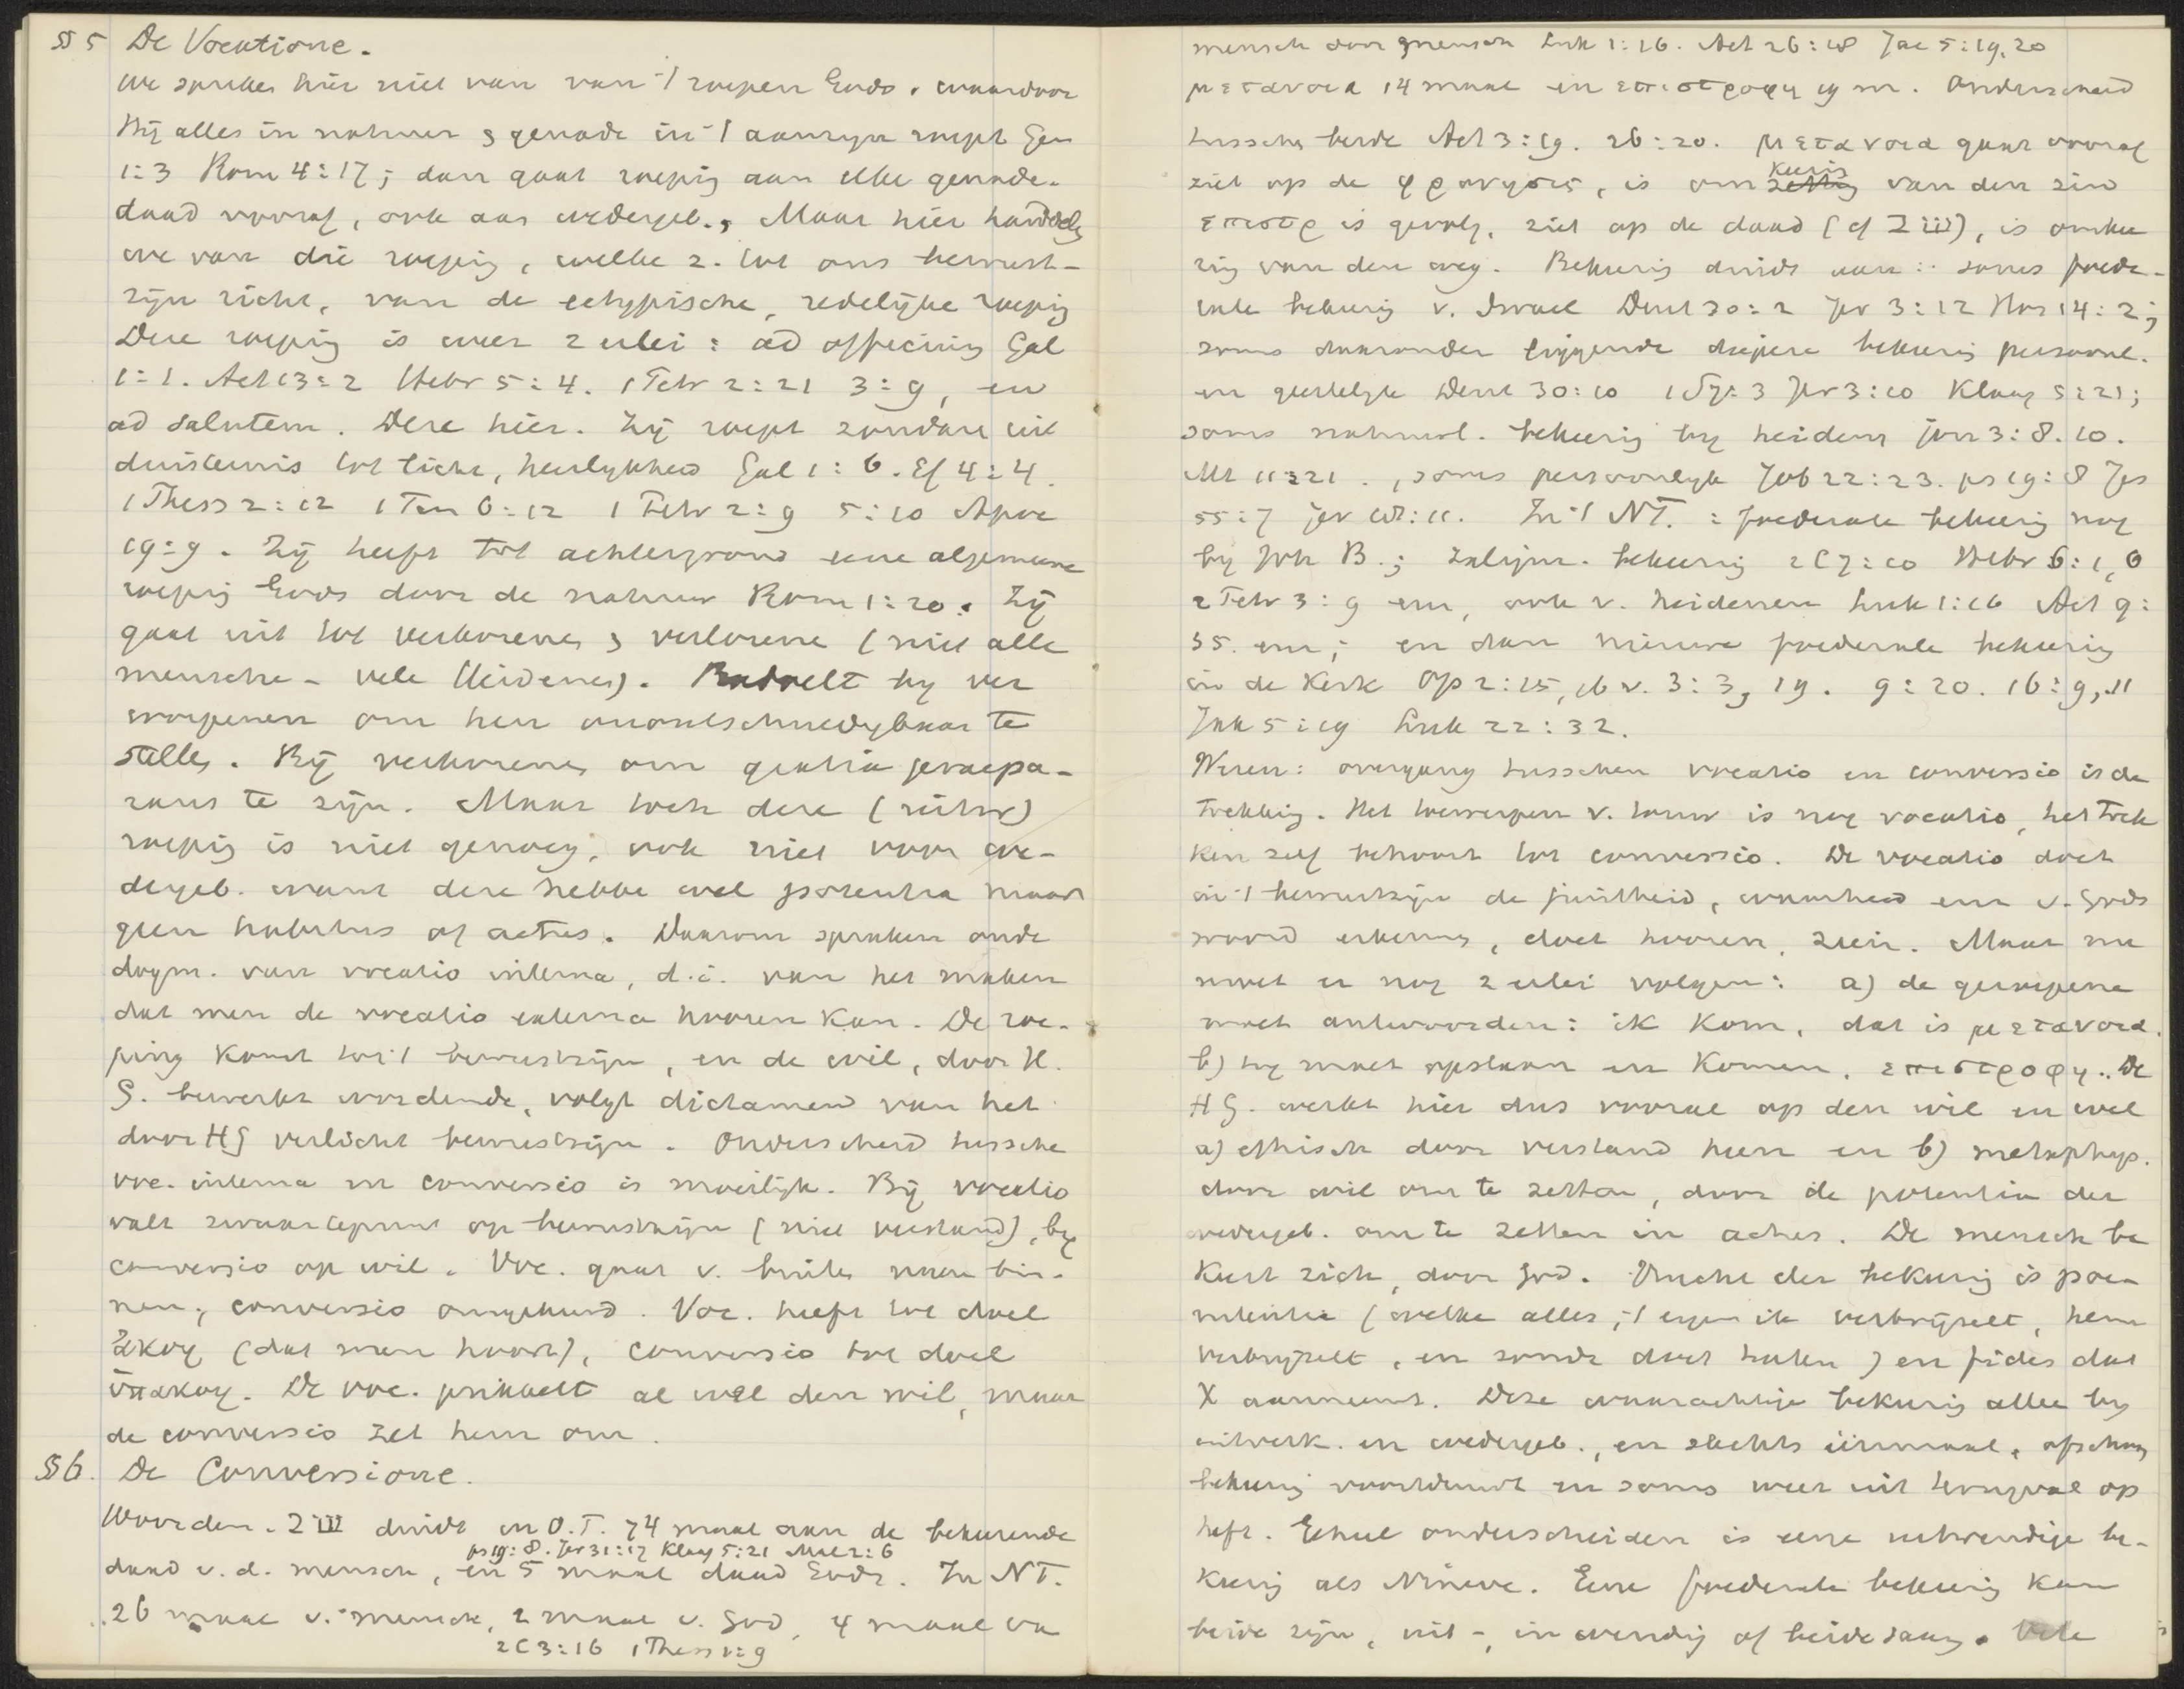 § 5 De Vocatione.
We spreken hier niet van van 't roepen Gods, waardoor
Hij alles in natuur & genade in 't aanzijn roept Gen
1:3 Rom 4:17; dan gaat roeping aan elke genade-
daad vooraf, ook aan wedergeb., Maar hier handelen
we van die roeping, welke z. tot ons bewust-
zijn richt, van de ectypische, redelijke roeping
Deze roeping is weer 2 erlei: ad officium Gal
1:1. Act 13:2 Hebr 5:4. 1 Petr 2:21 3:9, en
ad salutem. Deze hier. Zij roept zondaars uit
duisternis tot licht, heerlykheid Gal 1:6. Ef 4:4.
1 Thess 2:12 1 Tim 6:12 1 Petr 2:9 5:10 Apoc
19:9. Zij heeft tot achtergrond eene algemeene
roeping Gods door de natuur Rom 1:20. Zij
gaat uit tot verkorenen & verlorene (niet alle
menschen - vele Heidenen). Bedoelt by ver
worpenen om hen onontschuldigbaar te
stellen. Bij verkorenen om gratia praepa-
rans te zijn. Maar toch deze (uitw)
roeping is niet genoeg, ook niet voor we-
dergeb. want deze hebben wel potentia maar
geen habitus of actus. Daarom spraken oude
dogm. van vocatio interna, d.i. van het maken
dat men de vocatio externa hooren kan. De roe-
ping komt tot 't bewustzijn, en de wil, door H.
G. bewerkt wordende, volgt dictamen van het
door HG verlicht bewustzijn. Onderscheid tussche
voc. interna en conversio is moeilijk. Bij vocatio
valt zwaartepunt op bewustzijn (niet verstand), by
conversio op wil. Voc. gaat v. buiten naar bin-
nen; conversio omgekeerd. Voc. heeft tot doel
ἀκοη (dat men hoort), conversio tot doel
ὑπακοη. De voc. prikkelt al wel den wil, maar
de conversio zet hem om.
§ 6. De Conversione.
Woorden. שוב duidt in O.T. 74 maal aan de bekeerende
ps 19:8. Jer 31:17 Klaag 5:21 Mal 2:6
daad v.d. mensch, en 5 maal daad Gods. In NT.
26 maal v. mensch, 2 maal v. God, 4 maal van
2 C 3:16 1 Thess 1:9
mensch door mensch Luk 1:16. Act 26:18 Jac 5:19.20
μετανοια 14 maal en επιστροφη 19 m. Onderscheid
tusschen beide Act 3:19. 26:20. μετανοια gaat vooraf
ziet op de φρονησις, is omkeering van den zin
επιστρ is gevolg, ziet op de daad (cf שוב), is omkee
ring van den weg. Bekeering duidt aan: soms foede-
rale bekeering v. Israel Deut 30:2 Jer 3:12 Hos 14:2;
soms daaronder liggende diepere bekeering persoonl.
en geestelyke Deut 30:10 1 S 7:3 Jer 3:10 Klaag 5:21;
soms nationaal. bekeering by heidenen Jon 3:8.10.
Mt 11:21., soms persoonlyk Job 22:23. ps 19:8 Jes
55:7 Jer 18:11. In 't NT.: foederale bekeering nog
by Joh B.; zaligm. bekeering 2 C 7:10 Hebr 6:1,6
2 Petr 3:9 enz, ook v. heidenen Luk 1:16 Act 9:
35. enz; en dan nieuwe foederale bekeering
in de Kerk Op 2:15, 16 v. 3:3, 19. 9:20. 16:9,11
Jak 5:19 Luk 22:32.
Wezen: overgang tusschen vocatio en conversio is de
trekking. Het toewerpen v. touw is nog vocatio, het trek
ken zelf behoort tot conversio. De vocatio doet
in 't bewustzijn de juistheid, waarheid enz v. Gods
woord erkennen, doet hooren, zien. Maar nu
moet er nog 2 erlei volgen: a) de geroepene
moet antwoorden: ik kom, dat is μετανοια.
b) hy moet opstaan en komen, επιστροφη. De
HG. werkt hier dus vooral op den wil en wel
a) ethisch door verstand heen en b) metaphys.
door wil om te zetten, door de potentia der
wedergeb. om te zetten in actus. De mensch be
keert zich, door God. Vrucht der bekeering is poe-
nitentia (welke alles, 't eigen ik verbrijzelt, hem
verbrijzelt, en zonde doet haten) en fides dat
X aanneemt. Deze waarachtige bekeering alleen by
uitverk. en wedergeb., en slechts éénmaal, ofschoon
bekeering voortduurt en soms weer uit terugval op
heft. Geheel onderscheiden is eene uitwendige be-
keering als Nineve. Eene foederale bekeering kan
beide zijn, uit-, inwendig of beide saam. Vele